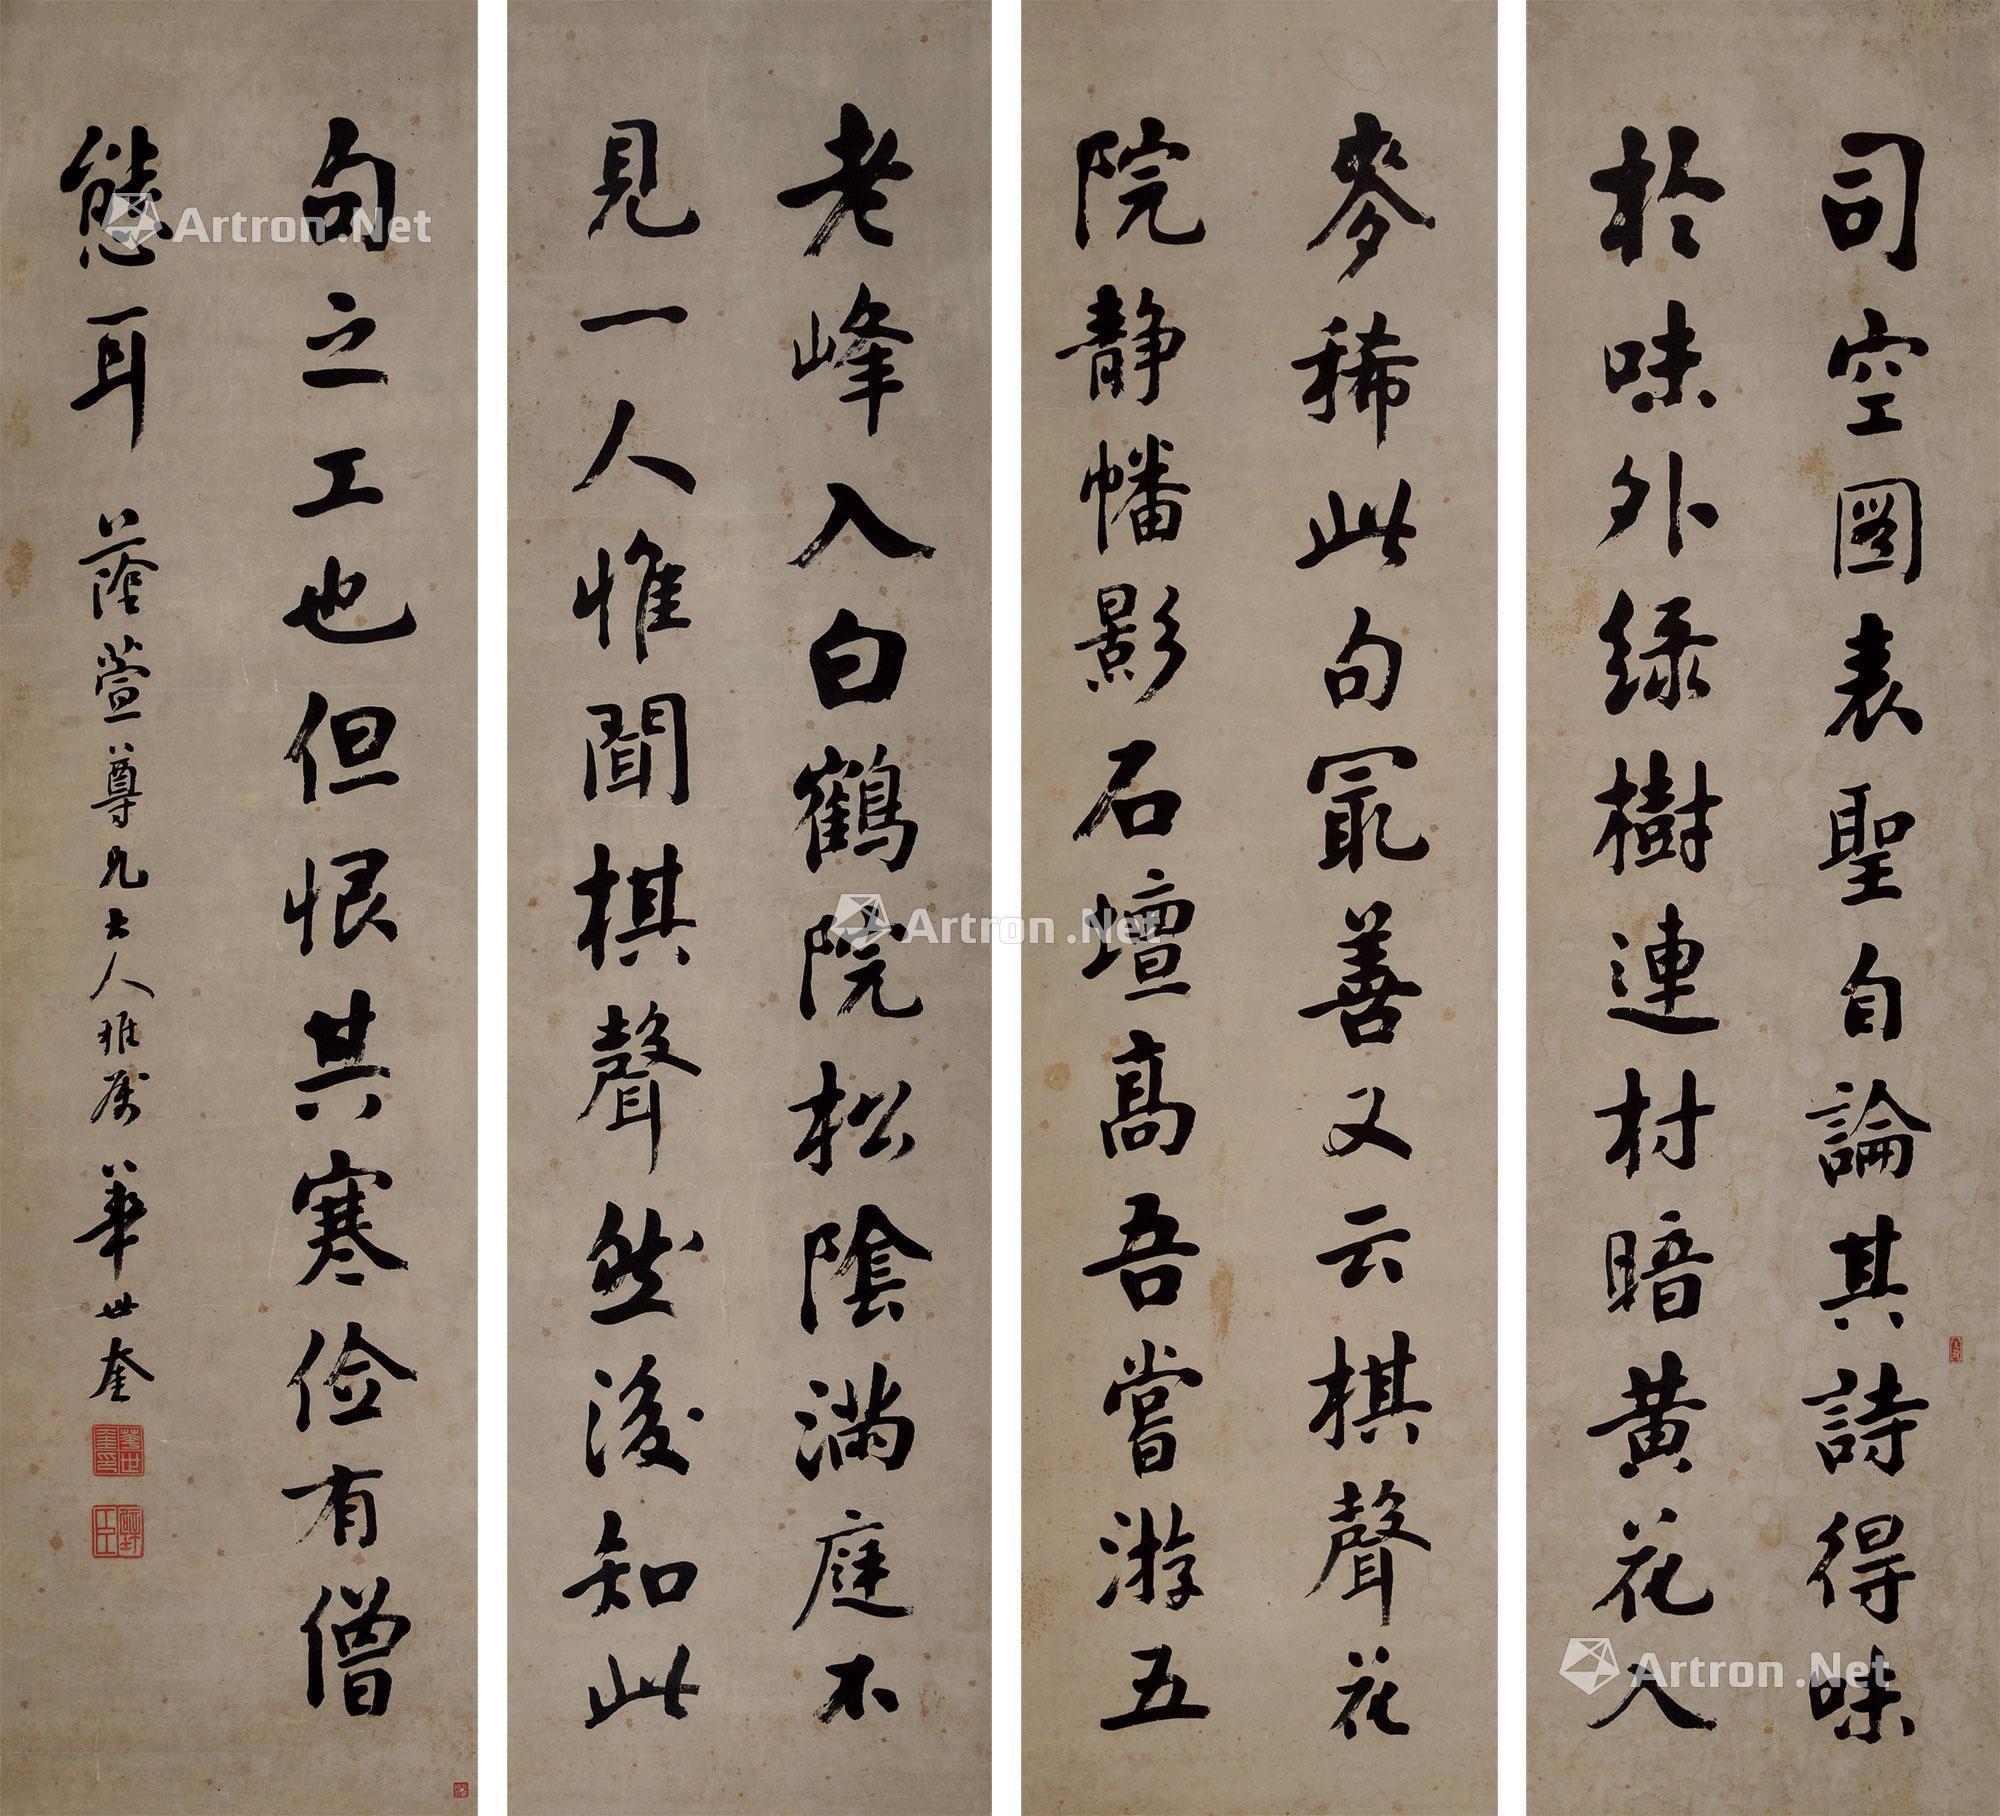 司空圖表聖自論其詩得味
於味外綠樹連村暗黄花入
麥稀此句冣善又云棋聲花
院静幡影石壇高吾嘗游五
老峰入白鶴院松陰滿庭不
見一人惟聞棋聲然後知此
句之工也但恨其寒俭有僧
態耳
蔭萱尊兄大人雅属 華世奎
華世奎印
Artron.Net
Artron.Net
Artron.Net